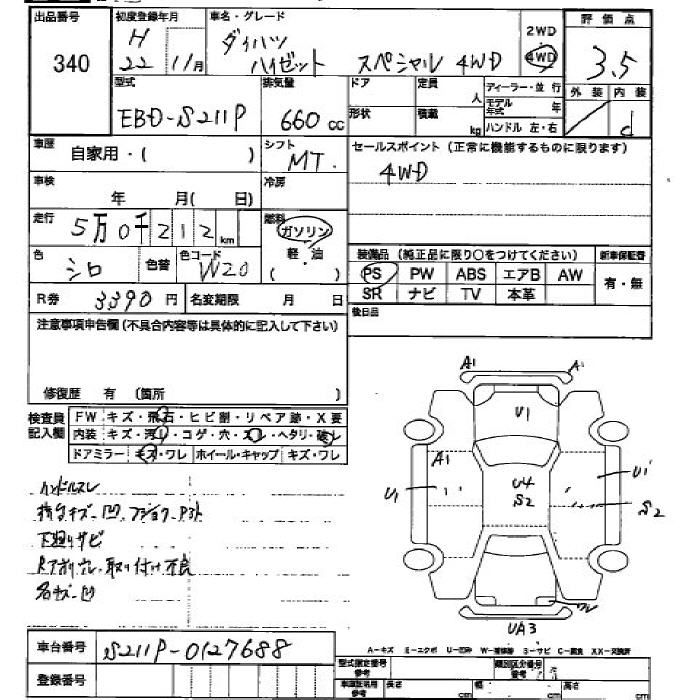 出品番号 初度登録年月 車名・グレード 2WD 評価点
340 H 22 11月 ダイハツ ハイゼット スペシャル 4WD 4WD 3.5
型式 排気量 ドア 定員 人 ディーラー・並行 外装 内装
EBD-S211P 660cc 形状 積載 kg モデル年式 年 d
ハンドル 左・右
車歴 自家用・( ) シフト MT. セールスポイント(正常に機能するものに限ります)
4WD
車検 年 月( 日) 冷房
走行 5万0千212km 燃料 ガソリン
軽・油
( )
色 シロ 色替 色コード W20 装備品(純正品に限り○をつけてください) 新車保証書
PS PW ABS エアB AW 有・無
SR ナビ TV 本革
R券 3390円 名変期限 月 日 後日品
注意事項申告欄(不具合内容等は具体的に記入して下さい)
修復歴 有 (箇所 )
検査員記入欄 FW キズ・飛石・ヒビ割・リペア跡・X要
内装 キズ・汚れ・コゲ・穴・スレ・ヘタリ・破レ
ドアミラー キズ・ワレ ホイール・キャップ キズ・ワレ
ハンドルスレ
下廻りサビ
取り付け不良
A1 A1
U1
A1 U4 S2 U1
U1 S2
UA3
車台番号 S211P-0127688
A-キズ E-エクボ U-凹 W-補修跡 S-サビ C-腐食 XX-交換済
登録番号 型式指定番号 参考 類別区分番号 参考
車庫証明用 参考 長さ cm 幅 cm 高さ cm